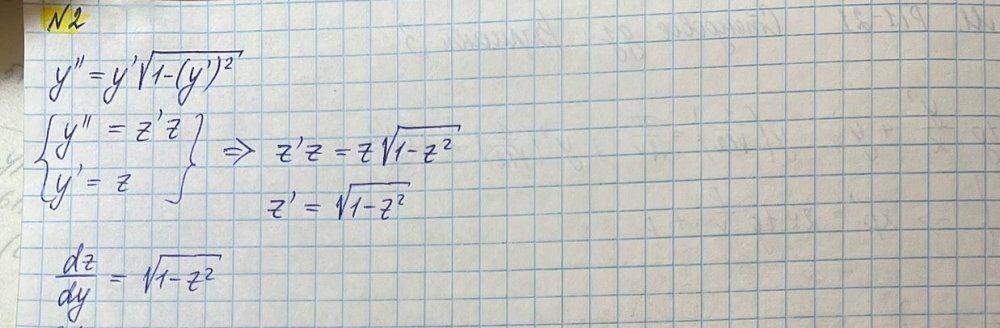 N2
y'' = y'√(1-(y')²)
{y'' = z'z
y' = z} => z'z = z√(1-z²)
z' = √(1-z²)
dz/dy = √(1-z²)